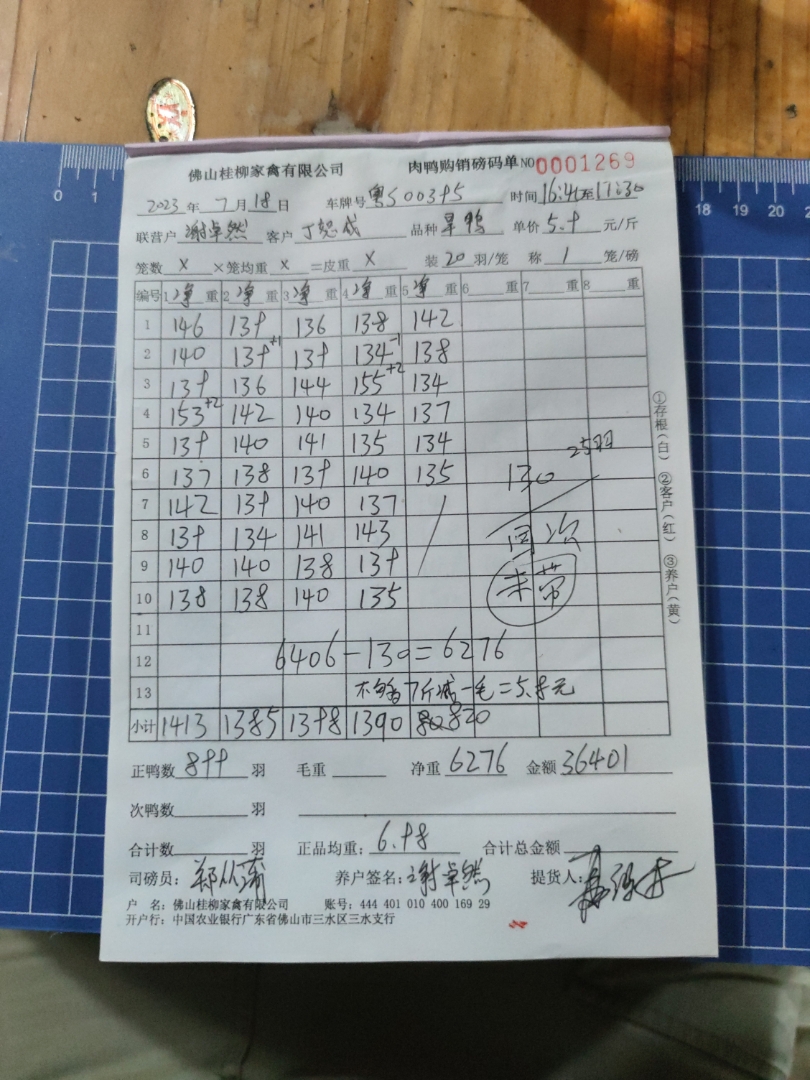 佛山桂柳家禽有限公司 肉鸭购销磅码单 NO 0001269
2023 年 7 月 18 日 车牌号 粤S00395 时间 16:40至17:30
联营户 谢卓然 客户 品种 旱鸭 单价 5.9 元/斤
笼数 X ×笼均重 X =皮重 X 装 20 羽/笼 称 1 笼/磅
编号 1 净 重 2 净 重 3 净 重 4 净 重 5 净 重 6 重 7 重 8 重
1 146 139 136 138 142
2 140 139+1 139 134-1 138
3 139 136 144 155+2 134
4 153+2 142 140 134 137
5 139 140 141 135 134 25羽
6 137 138 139 140 135 130
7 142 139 140 137
8 139 134 141 143 回次
9 140 140 138 139 未带
10 138 138 140 135
11
12 6406-130=6276
13 不够7斤减一毛=5.8元
小计 1413 1385 1398 1390 820
正鸭数 899 羽 毛重 净重 6276 金额 36401
次鸭数 羽
合计数 羽 正品均重: 6.98 合计总金额
司磅员: 养户签名: 谢卓然 提货人:
户 名: 佛山桂柳家禽有限公司 账号: 444 401 010 400 169 29
开户行: 中国农业银行广东省佛山市三水区三水支行
①存根(白) ②客户(红) ③养户(黄)